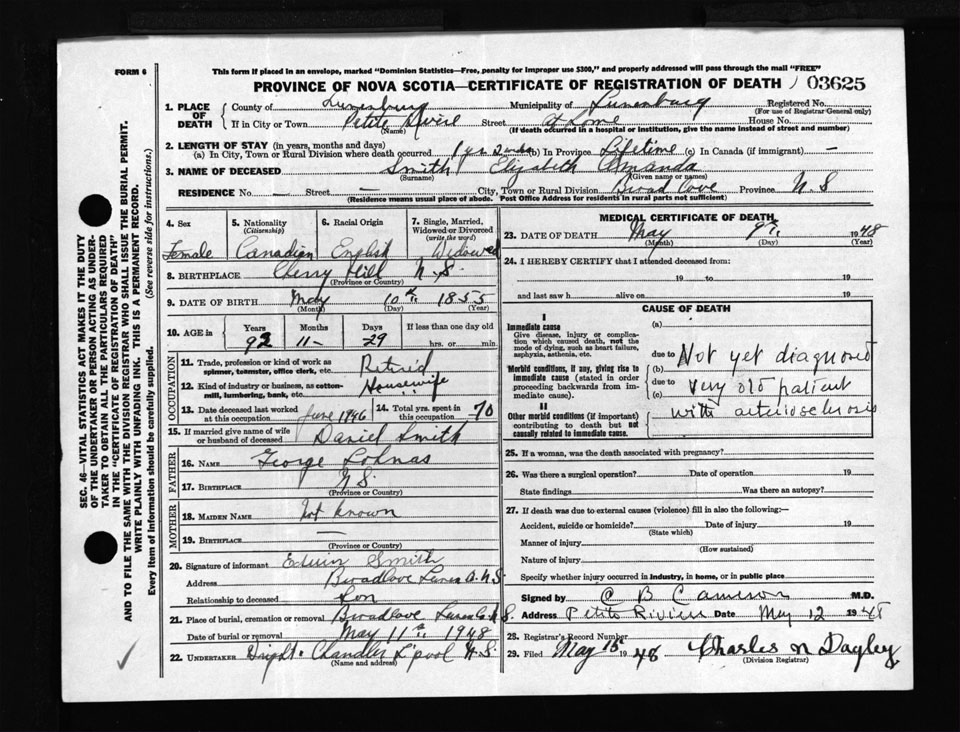 FORM 6
This form if placed in an envelope, marked "Dominion Statistics—Free, penalty for improper use $300," and properly addressed will pass through the mail "FREE"
PROVINCE OF NOVA SCOTIA—CERTIFICATE OF REGISTRATION OF DEATH 03625
1. PLACE OF DEATH County of Lunenburg Municipality of Lunenburg Registered No.
(For use of Registrar General only)
If in City or Town Petite Street at Home House No.
(Name) (If death occurred in a hospital or institution, give the name instead of street and number)
2. LENGTH OF STAY (in years, months and days)
(a) In City, Town or Rural Division where death occurred 1 yr. (b) In Province Lifetime (c) In Canada (if immigrant) —
3. NAME OF DECEASED Smith Elizabeth Amanda
(Surname) (Given name or names)
RESIDENCE No. — Street — City, Town or Rural Division Broad Cove Province N.S
(Residence means usual place of abode. Post Office Address for residents in rural parts not sufficient)
4. Sex Female
5. Nationality (Citizenship) Canadian
6. Racial Origin English
7. Single, Married, Widowed or Divorced (write the word) Widowed
8. BIRTHPLACE Cherry Hill N.S.
(Province or Country)
9. DATE OF BIRTH May 10th 1855
(Month) (Day) (Year)
10. AGE in Years Months Days If less than one day old
92 11 29 hrs. or min.
OCCUPATION
11. Trade, profession or kind of work as spinner, teamster, office clerk, etc. Retired
12. Kind of industry or business, as cotton-mill, lumbering, bank, etc. Housewife
13. Date deceased last worked at this occupation June 1946
14. Total yrs. spent in this occupation 70
15. If married give name of wife or husband of deceased Daniel Smith
FATHER
16. NAME George Lohnas
17. BIRTHPLACE N.S.
(Province or Country)
MOTHER
18. MAIDEN NAME Not Known
19. BIRTHPLACE —
(Province or Country)
20. Signature of informant Edwin Smith
Address Broadcove Lunen Co. N.S.
Relationship to deceased Son
21. Place of burial, cremation or removal Broadcove Lunen Co N.S.
Date of burial or removal May 11th 1948
22. UNDERTAKER Chandler L'pool N.S.
(Name and address)
MEDICAL CERTIFICATE OF DEATH
23. DATE OF DEATH May 9th 1948
(Month) (Day) (Year)
24. I HEREBY CERTIFY that I attended deceased from:
19 to 19
and last saw h alive on 19
CAUSE OF DEATH
I
Immediate cause
Give disease, injury or complication which caused death, not the mode of dying, such as heart failure, asphyxia, asthenia, etc.
(a)
due to
Morbid conditions, if any, giving rise to immediate cause (stated in order proceeding backwards from immediate cause).
(b) Not yet diagnosed
due to
(c) very old patient
II
Other morbid conditions (if important) contributing to death but not causally related to immediate cause.
with arteriosclerosis
25. If a woman, was the death associated with pregnancy?
26. Was there a surgical operation? Date of operation 19
State findings Was there an autopsy?
27. If death was due to external causes (violence) fill in also the following:—
Accident, suicide or homicide? Date of injury 19
(State which)
Manner of injury
(How sustained)
Nature of injury
Specify whether injury occurred in industry, in home, or in public place
Signed by C B Cameron M.D.
Address Petite Riviere Date May 12 1948
28. Registrar's Record Number
29. Filed May 15 1948 Charles N Dagley
(Division Registrar)
SEC. 46—VITAL STATISTICS ACT MAKES IT THE DUTY OF THE UNDERTAKER OR PERSON ACTING AS UNDERTAKER TO OBTAIN ALL THE PARTICULARS REQUIRED IN THE "CERTIFICATE OF REGISTRATION OF DEATH"
AND TO FILE THE SAME WITH THE DIVISION REGISTRAR WHO SHALL ISSUE THE BURIAL PERMIT.
WRITE PLAINLY WITH UNFADING INK. THIS IS A PERMANENT RECORD.
Every item of information should be carefully supplied. (See reverse side for instructions.)